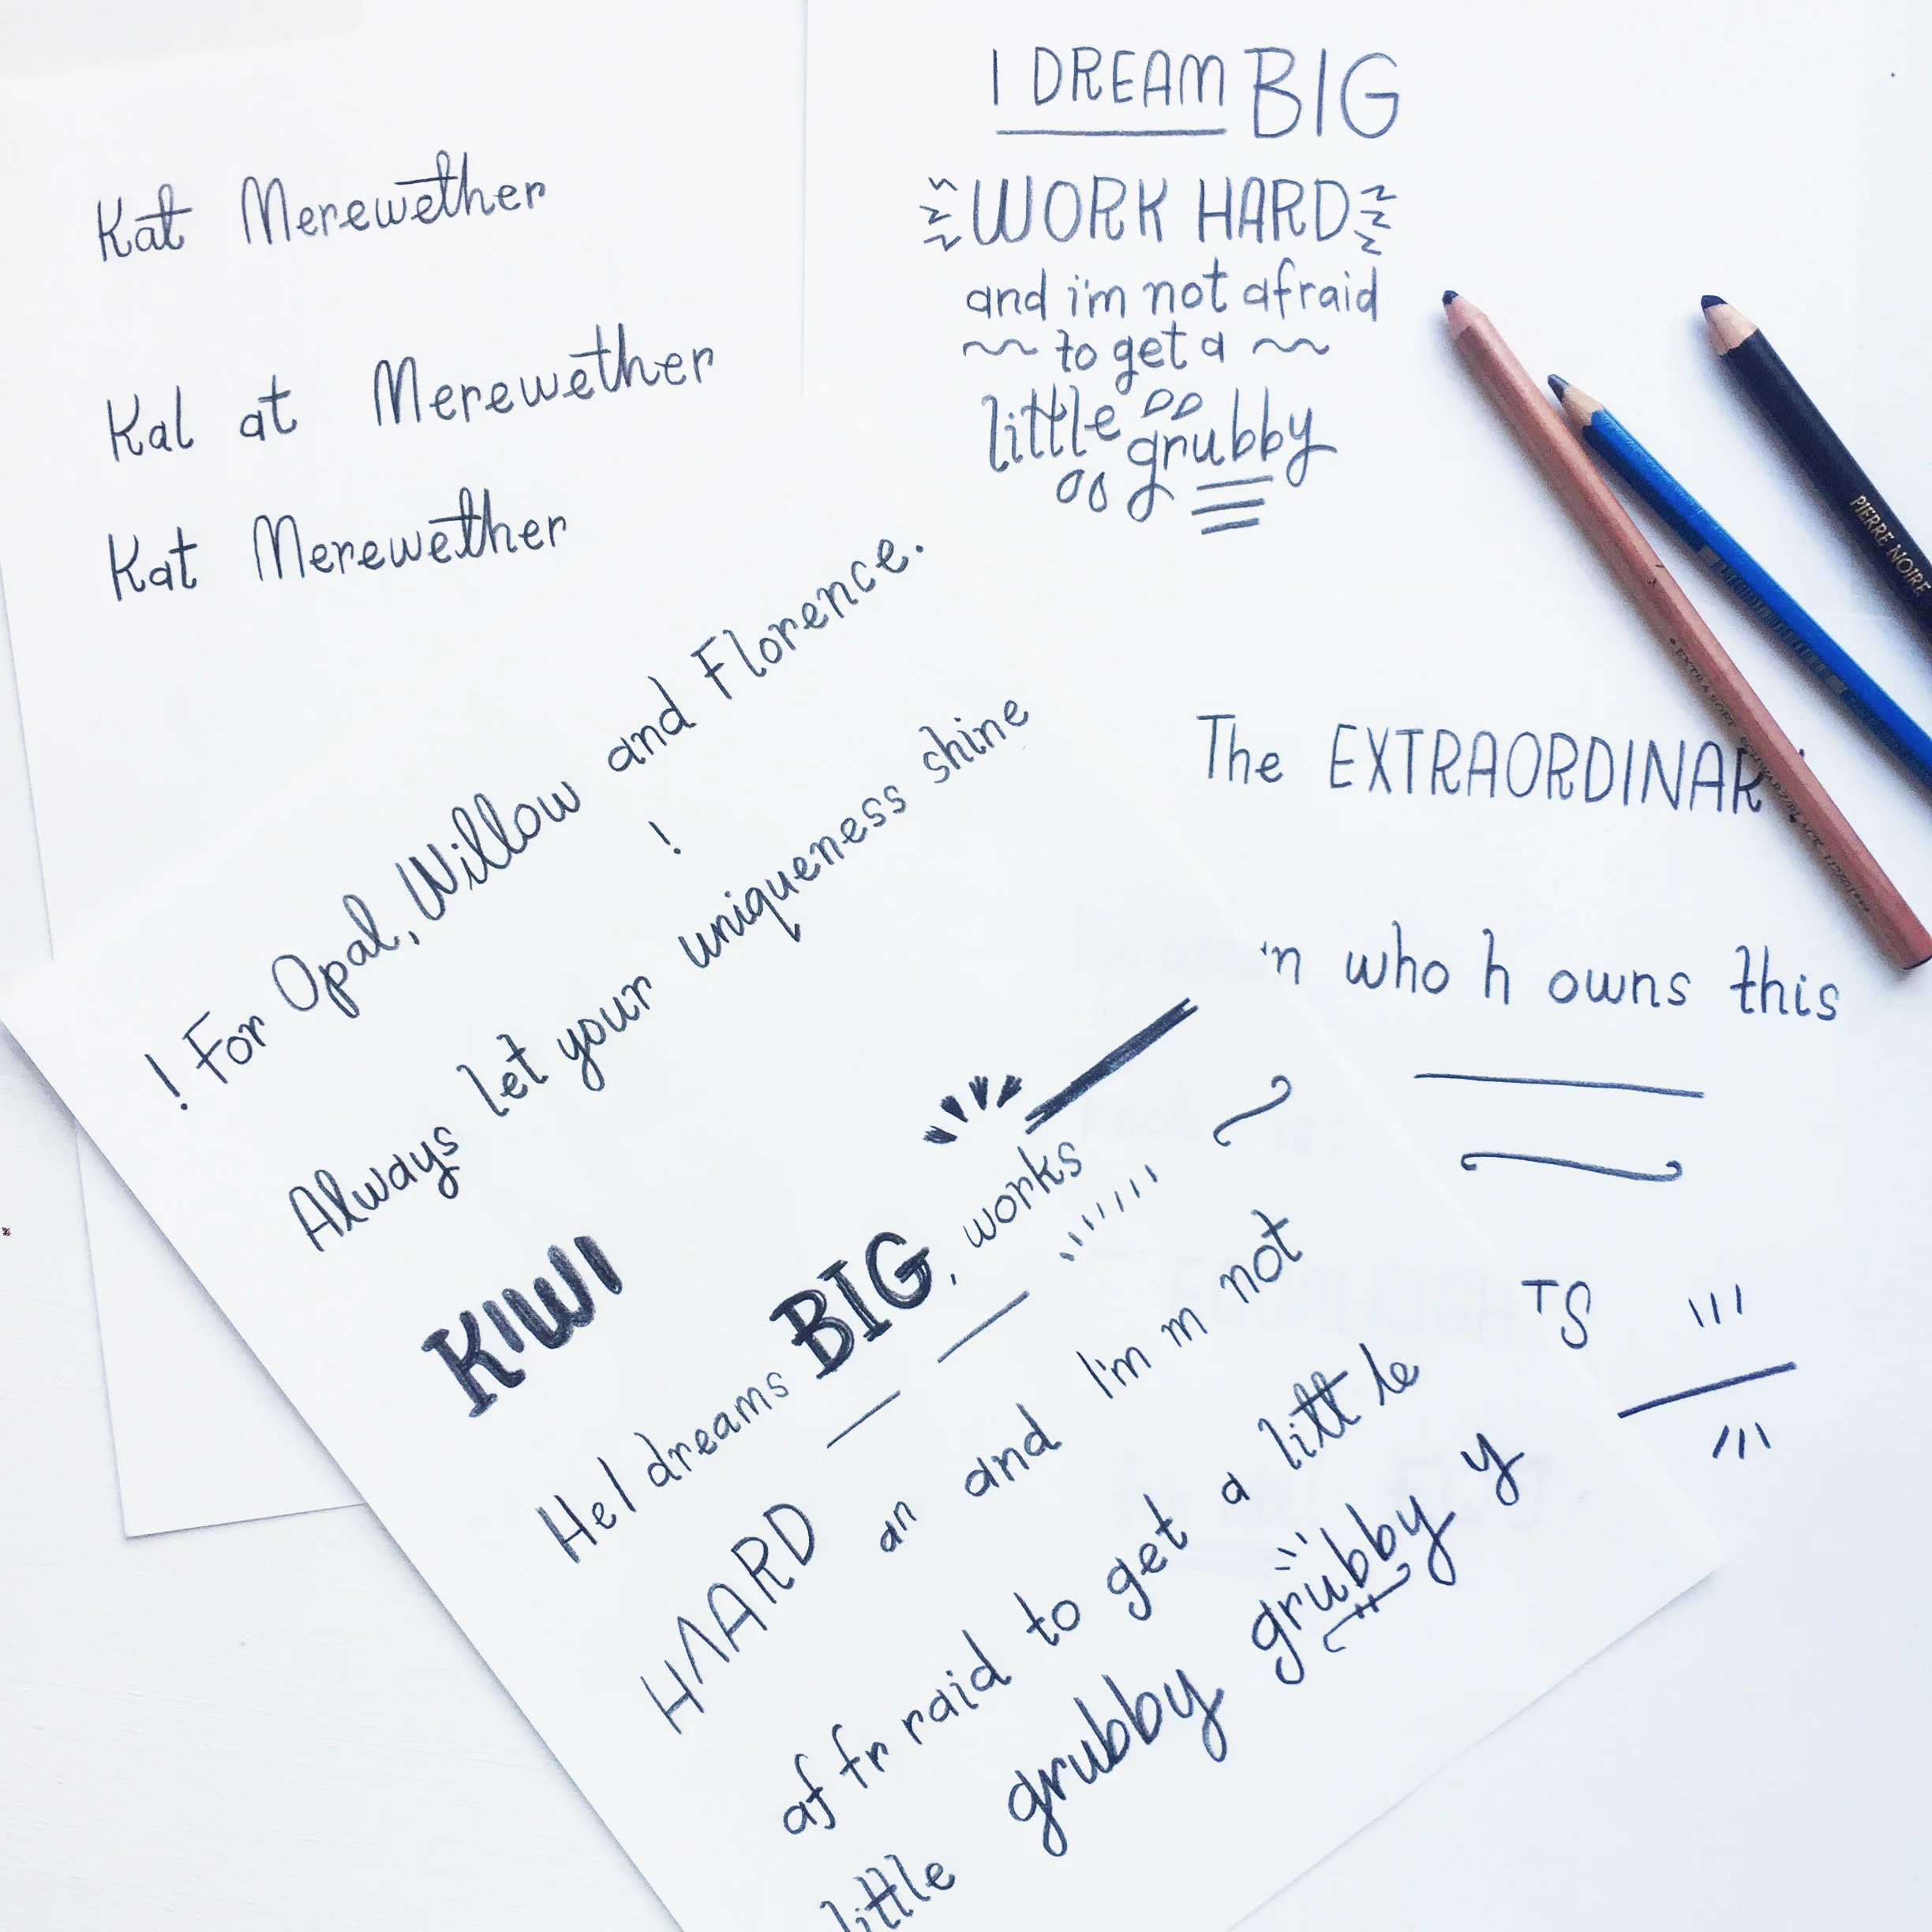 Kat Merewether
Kal at Merewether
Kat Merewether
I DREAM BIG
WORK HARD
and i'm not afraid
to get a
little grubby
PIERRE NOIRE
The EXTRAORDINAR
n who h owns this
TS
! For Opal, Willow and Florence.
!
Always let your uniqueness shine
KIWI
HeI dreams BIG, works
HAARD an and I'm m not
af fr raid to get a litt le
little grubby grubby y